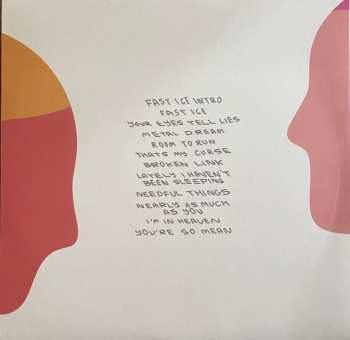 FAST ICE INTRO
FAST ICE
YOUR EYES TELL LIES
METAL DREAM
ROOM TO RUN
THATS MY CURSE
BROKEN LINK
LATELY I HAVEN'T
BEEN SLEEPING
NEEDFUL THINGS
NEARLY AS MUCH
AS YOU
I'M IN HEAVEN
YOU'RE SO MEAN